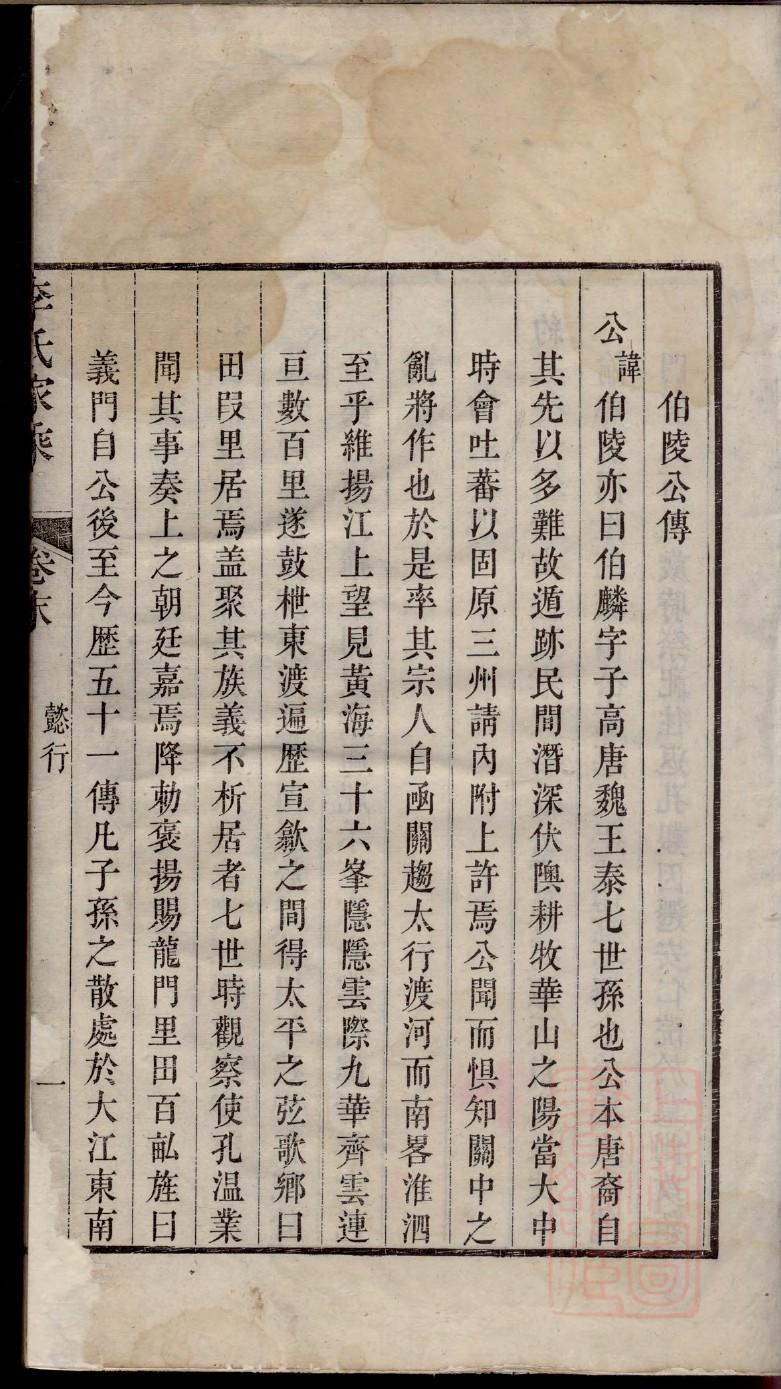 伯陵公傳
公諱伯陵亦曰伯麟字子高唐魏王泰七世孫也公本唐裔自
其先以多難故遁跡民間潛深伏隩耕牧華山之陽當大中
時會吐蕃以固原三州請內附上許焉公聞而惧知關中之
亂將作也於是率其宗人自函關趨太行渡河而南畧淮泗
至乎維揚江上望見黃海三十六峯隱隱雲際九華齊雲連
亘數百里遂鼓枻東渡遍歷宣歙之間得太平之弦歌鄉曰
田段里居焉盖聚其族義不析居者七世時觀察使孔溫業
聞其事奏上之朝廷嘉焉降勅褒揚賜龍門里田百畝旌曰
義門自公後至今歷五十一傳凡子孫之散處於大江東南
李氏家乘 卷末 懿行 一